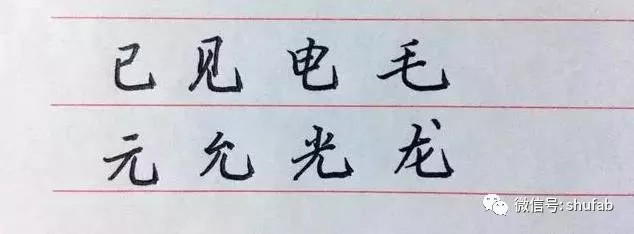 已见电毛
元允光龙
微信号: shufab